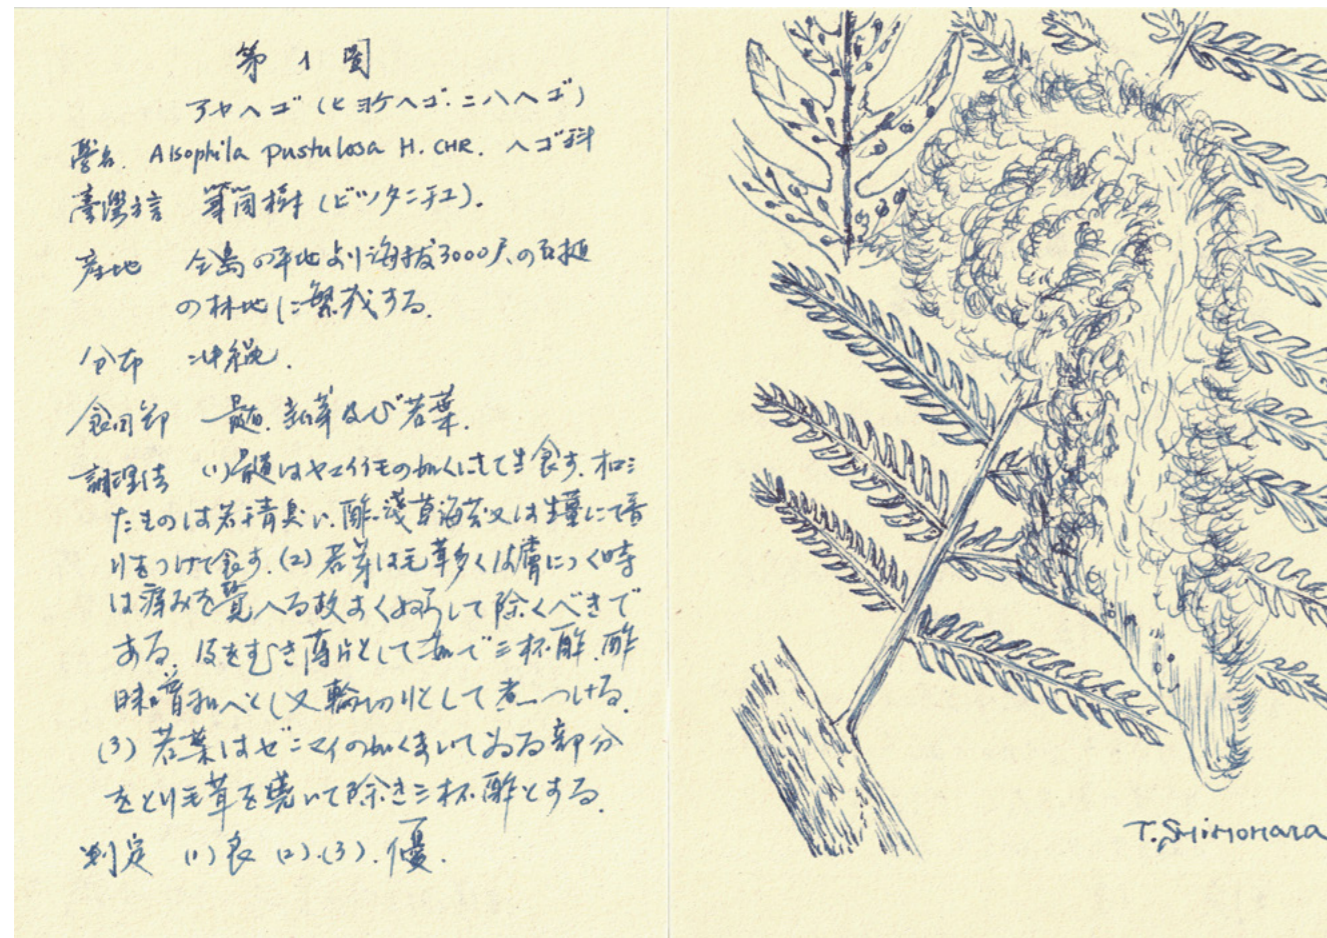 第1圖
アヤヘゴ(ヒヨケヘゴ.ニハヘゴ)
學名. Alsophila pustulosa H. CHR. ヘゴ科
臺灣方言 筆筒樹(ビツタニチユ).
産地 全島の平地より海抜3000尺の
の林地に繁茂する.
分布 沖縄.
食用部 髄. 新芽及び若葉.
調理法 (1)髄はヤマイモの如くにして生食す.
たものは若干青臭い. 酢. 淺草海苔又は生薑にて香
りをつけて食す.(2)若芽は毛茸多く皮膚につく時
は痛みを覺へる故よく して除くべきで
ある. 皮をむき薄片として茹で三杯酢. 酢
味噌和へとし又輪切りとして煮つける.
(3) 若葉はゼンマイの如くまいてゐる部分
をとり毛茸を焼いて除き三杯酢とする.
判定 (1)良 (2).(3). 優.
T. SHIMOHARA